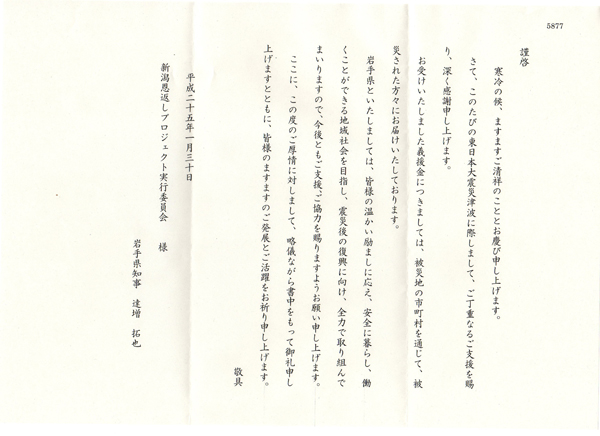 5877
謹啓
寒冷の候、ますますご清祥のこととお慶び申し上げます。
さて、このたびの東日本大震災津波に際しまして、ご丁重なるご支援を賜
り、深く感謝申し上げます。
お受けいたしました義援金につきましては、被災地の市町村を通じて、被
災された方々にお届けいたしております。
岩手県といたしましては、皆様の温かい励ましに応え、安全に暮らし、働
くことができる地域社会を目指し、震災後の復興に向け、全力で取り組んで
まいりますので、今後ともご支援、ご協力を賜りますようお願い申し上げます。
ここに、この度のご厚情に対しまして、略儀ながら書中をもって御礼申し
上げますとともに、皆様のますますのご発展とご活躍をお祈り申し上げます。
敬具
平成二十五年一月三十日
新潟恩返しプロジェクト実行委員会 様
岩手県知事 達増 拓也